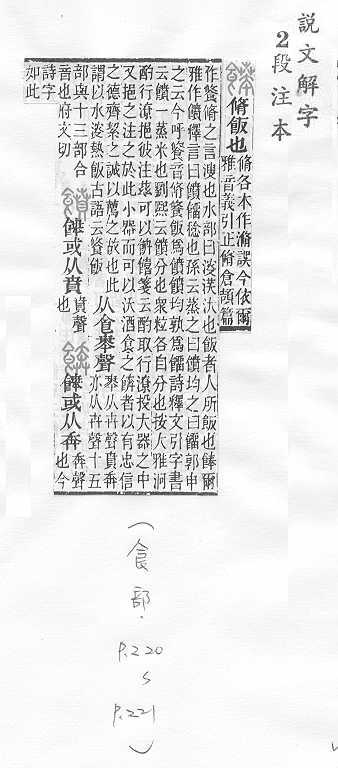 說文解字
2段注本
脩飯也脩各本作滫誤今依爾
雅音義引正脩倉頡篇
作餐脩之言溲也水部曰浚㳶汏也飯者人所飯也餴爾
雅作饙饙釋言曰饙餾稔也孫云蒸之曰饙均之曰餾郭
之云今呼餐音脩餐飯為饙饙均孰為餾詩釋文引字書
云饙一蒸米也劉熙云饙分也衆粒各自分也按大雅泂
酌行潦挹彼注茲可以餴饎箋云酌取行潦投大器之中
又挹之注之於此小器而可以沃酒食之餴者以有忠信
之德齊絜之誠以薦之故也此从食𠦪聲
謂以水浚熱飯古語云餐飯
𠦪从卉聲賁奔亦从卉聲十五
部與十三部合
音也府文切
餴或从賁賁聲也
餴或从奔奔聲也今
詩字如此
(食部.
P.220
S
P.221
)